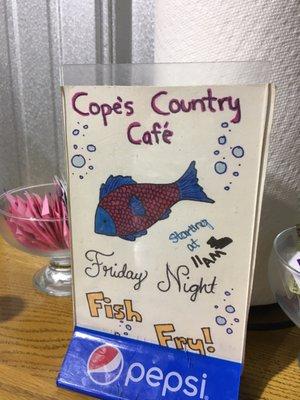 Cope's Country
Café
Starting
at
11AM
Friday Night
Fish
Fry!
pepsi